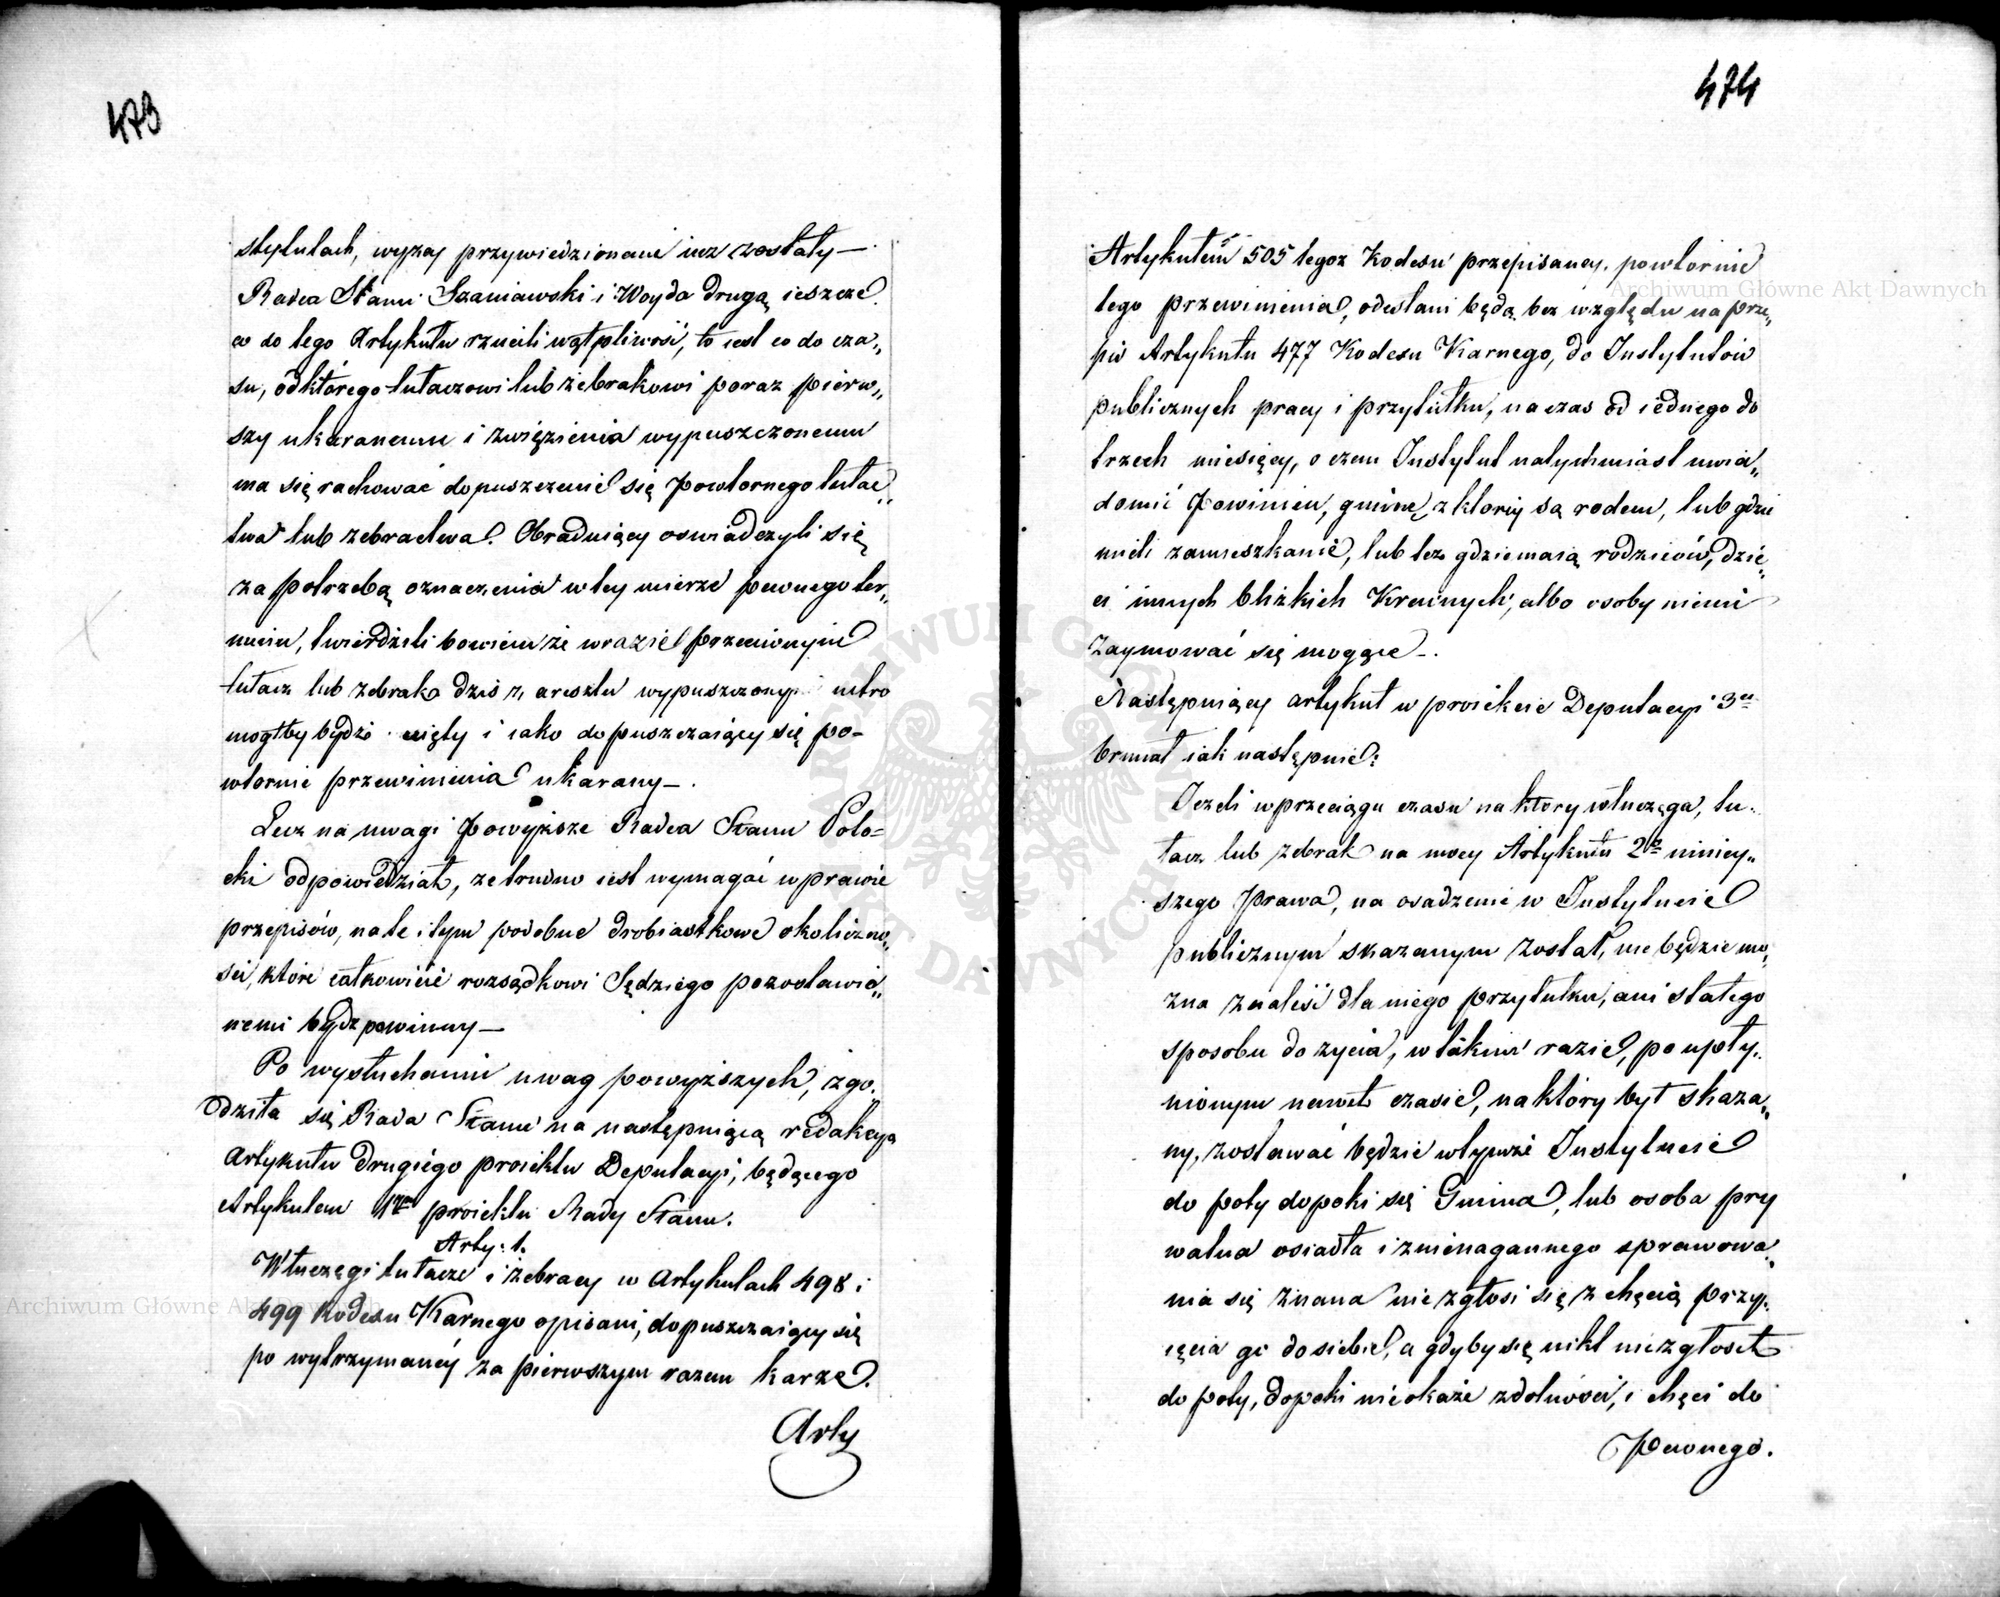 473
stytutach, wyżey przywiedzionemi iuz zostały —
Radca Stanu Szaniawski i Woyda drugą ieszcze
co do tego Artykułu rzucili wątpliwość, to iest co do cza„
su, od którego tułaczowi lub żebrakowi poraz pierw„
szy ukaranemu i zwięzienia wypuszczonemu
ma się rachować dopuszczenie się powtornego tułac„
twa lub zebractwa. Obraduiący oswiadczyli się
za potrzebą oznaczenia w tey mierze pewnego ter„
minu, twierdzili bowiem że w razie przeciwnym
tułacz lub zebrak dzis z aresztu wypuszczony iutro
mogłby bydź uięty i iako dopuszczaiący się po-
wtornie przewinienia ukarany —.
Lecz na uwagi powyższe Radca Stanu Poto=
cki odpowiedział, ze trudno iest wymagać w prawie
przepisów, na te i tym podobne drobiastkowe okoliczno„
sci, które całkowicie rozsądkowi Sędziego pozostawio„
nemi bydz powinny —
Po wysłuchaniu uwag powyższych, zgo„
dziła się Rada Stanu na następuiącą redakcyą
Artykułu drugiego proiektu Deputacyi, będącego
Artykułem 1m proiektu Rady Stanu.
Arty: 1.
Włuczęgi tułacze i żebracy w Artykułach 498 i
499 Kodexu Karnego opisani, dopuszczaiący się
po wytrzymaney za pierwszym razem karze.
Arty
474
Artykułem 505 tegoż Kodexu przepisaney, powtornie
tego przewinienia, odesłani będą bez względu na prze„
pis Artykułu 477 Kodexu Karnego, do Instytutow
publicznych pracy i przytułku, na czas od iednego do
trzech miesięcy, o czem Instytut natychmiast uwia„
domić powinien, gminę z ktorey są rodem, lub gdzie
mieli zamieszkanie, lub tez gdzie maią rodziców, dzie„
ci innych blizkich Krewnych, albo osoby niemi
zaymować się mogące —.
Następuiący artykuł w proiekcie Deputacyi 3ci
brmiał iak następuie:
Jezeli w przeciągu czasu na ktory włuczęga, tu„
łacz lub zebrak na mocy Artykułu 2go niniey„
szego Prawa, na osadzenie w Instytucie
publicznym skazanym został, nie będzie mo„
zna znaleść dla niego przytułku, ani stałego
sposobu do zycia, w takim razie, po upły„
nionym nawet czasie, na który był skaza„
ny, zostawać będzie w tymże Instytucie
do poty dopoki się Gmina, lub osoba pry
watna osiadła i z nienagannego sprawowa„
nia się znana nie zgłosi się z chęcią przy„
ięcia go do siebie, a gdyby się nikt nie zgłosił
do poty, dopoki nie okaże zdolności, i chęci do
Pewnego.
Archiwum Główne Akt Dawnych
Archiwum Główne Akt Dawnych
ARCHIWUM GŁÓWNE AKT DAWNYCH